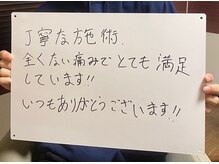 丁寧な施術、
全くない痛みでとても満足
しています!!
いつもありがとうございます!!